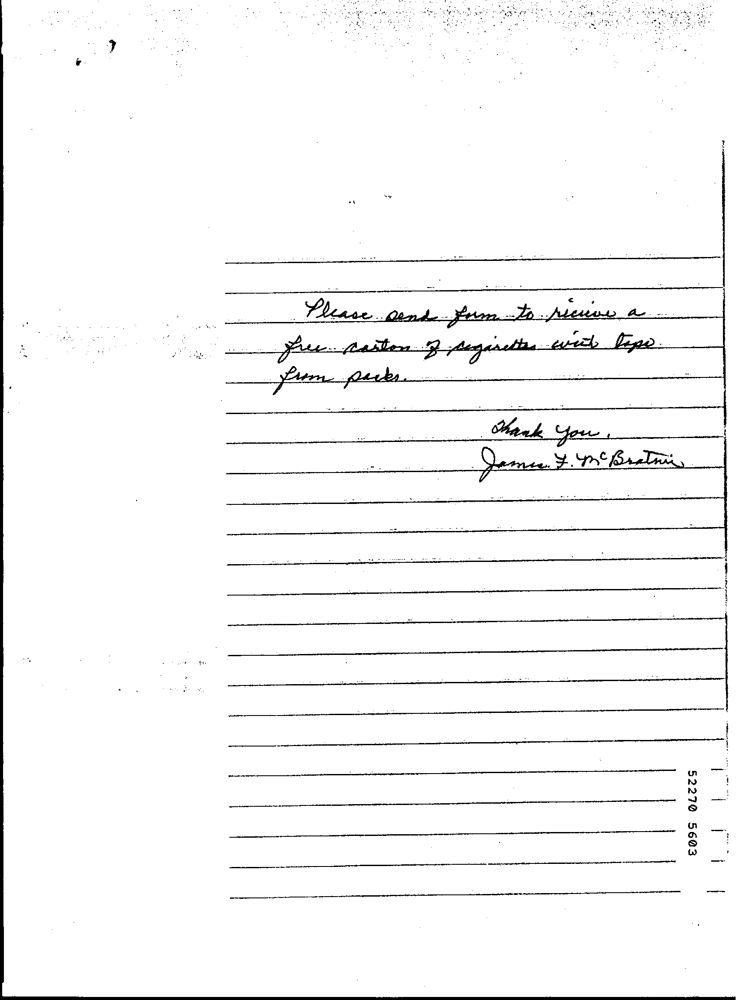 Please send form to recieve a
free carton of cigarettes with tape
from packs.
Thank you,
James F. McBratnie
52270 5603